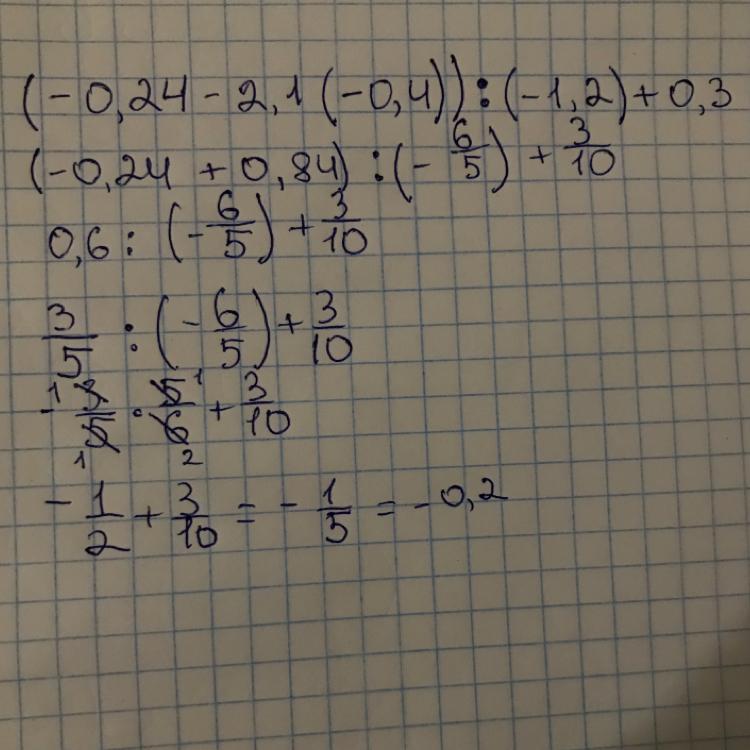 (-0,24 - 2,1(-0,4)) : (-1,2) + 0,3
(-0,24 + 0,84) : (-6/5) + 3/10
0,6 : (-6/5) + 3/10
3/5 : (-6/5) + 3/10
-3/5 · 5/6 + 3/10
-1/2 + 3/10 = -1/5 = -0,2